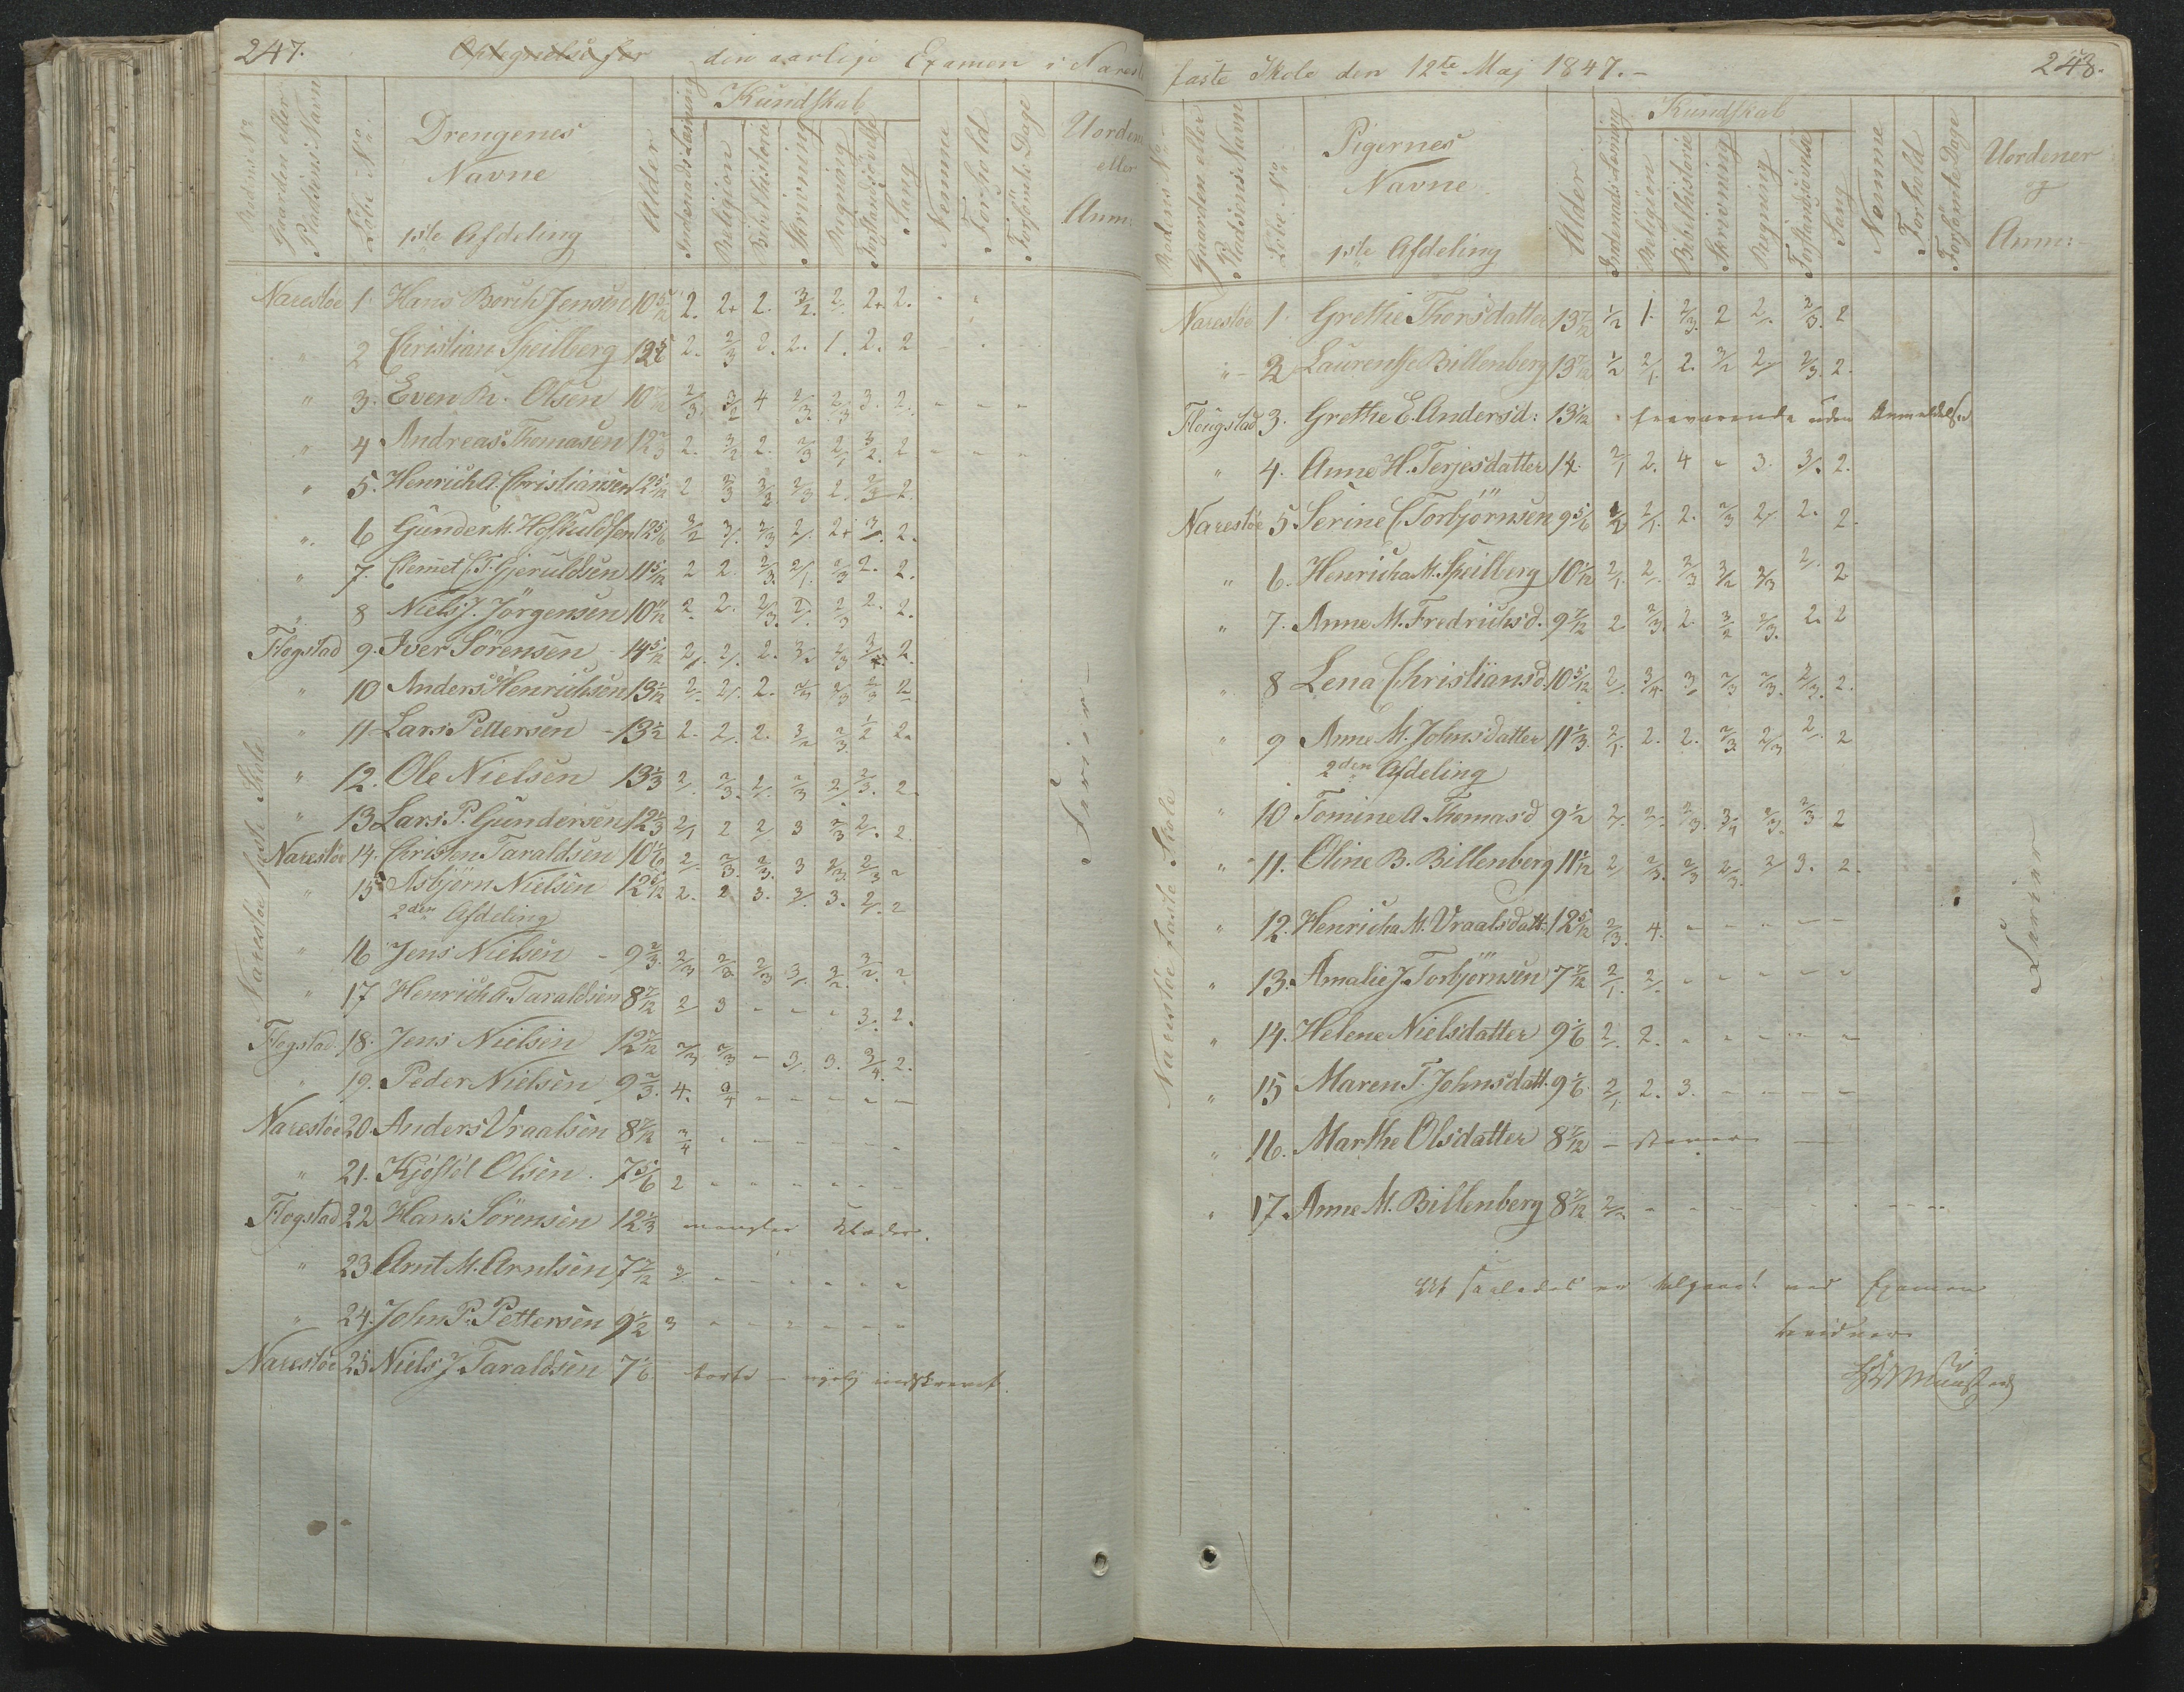 247.
Optegnelse for den aarlige Examen i Narest
Rodens No
Gaarden eller Pladsens Navn
Löbe No
Drengenes Navne
1ste Afdeling
Alder
Kundskab
Indenads Læsning
Religion
Bibelhistorie
Skrivning
Regning
Forstandsøvelse
Sang
Nemme
Forhold
Forsömte Dage
Uorden eller Anm:
Narestöe faste Skole
Narestöe 1 Hans Borch Jensen 10 5/12 2. 2+ 2. 3/2. 2/. 2+ 2.
" 2 Christian Speilberg 2. 2/3 2. 2. 1. 2. 2
" 3. Even Olsen 2/3 3/2 4 2/3. 2/3 3. 2.
" 4 Andreas Thomasen 12 2/3 2. 3/2 2. 2/3 2/1 3/2. 2
" 5. Henrich A. Christiansen 12 5/12 2 2/3 3/2. 2/3 2. 2/3 2.
" 6 Gunder M. 12 5/6 3/2 3/. 2/3 2/. 2+ 3/. 2.
" 7. Clemet C. T. Gjeruldsen 11 5/12 2 2. 2/3. 2/1. 2/3 2. 2.
" 8 Niels J. Jörgensen 2. 2. 2/3. 2/. 2/3 2. 2.
Flogstad 9. Iver Sörensen 14 5/12 2/. 2/. 2. 3/2 2/3 2.
" 10 Anders Henrichsen 13 1/12 2/. 2/. 2. 2/3 2/3 2/3 2
" 11 Lars Pettersen - 13 1/2 2. 2/. 2. 3/2 2/3. 1/2 2.
" 12. Ole Nielsen 13 1/3 2/. 2/3. 2/. 2/3 2/. 2/3. 2.
" 13 Lars P. Gundersen 12 1/3 2/1 2 2/ 3 2/3 2/. 2.
Narestöe 14. Christen Taraldsen 10 1/6 2/. 2/3. 2/3. 3 2/3. 2/3 2
" 15 Asbjörn Nielsen 12 5/12 2. 2 3. 3/. 3. 2/. 2
2den Afdeling
" 16 Jens Nielsen - 9 2/3. 2/3 2/3 2/3 3/. 3/2. 3/2. 2
" 17 Henrich A. Taraldsen 8 7/12 2/ 3 - - - 3. 2.
Flogstad. 18. Jens Nielsen 12 7/12 2/3 2/3 - 3/. 3. 3/4. 2.
" 19. Peder Nielsen 9 2/3. 4. 3/4 - - - - -
Narestöe 20. Anders Vraalsen 8 7/12 3/4 - - - - - -
" 21. Kjöstöl Olsen. 7 5/6 2 - - - - - -
Flogstad 22 Hans Sörensen 12 1/3 mangler Klæder.
" 23 Arnt M. Arntsen 7 7/12 3/. - - - - - -
" 24. John P. Pettersen 9 1/2 3 - - - - - -
Narestöe 25 Niels J. Taraldsen 7 1/6 borte - nylig indskrevet.
faste Skole den 12te Maj 1847. -
248.
Rodens No
Gaarden eller Pladsens Navn
Löbe No
Pigernes Navne
1ste Afdeling
Alder
Kundskab
Indenads Læsning
Religion
Bibelhistorie
Skrivning
Regning
Forstandsøvelse
Sang
Nemme
Forhold
Forsömte Dage
Uordener og Anm:
Narestöe faste Skole
Narestöe 1 Grethe Thorsdatter 13 7/12 1/2 1. 2/3. 2 2/. 2/3. 2
" 2 Laurense Billenberg 13 7/12 1/2 2/1. 2. 3/2 2/ 2/3. 2.
Flougstad 3. Grethe E. Andersd: 13 1/12 fraværende uden Anmeldelse
" 4. Anne H. Terjesdatter 14 2/1 2. 4 - 3. 3/. 2.
Narestöe 5. Serine C. Torbjörnsen 9 5/6 2/1. 2. 2/3 2/. 2. 2.
" 6. Henricha M. Speilberg 10 1/12 2/1. 2/. 2/3 3/2 2/3 2/. 2
" 7. Anne M. Fredrichsd. 9 7/12 2. 2/3. 2. 3/2 2/3. 2. 2
" 8 Lena Christiansd. 10 5/12 2/. 3/4. 3/ 2/3 2/3. 2/3. 2.
" 9 Anne M. Johnsdatter 11 1/3. 2/1. 2. 2. 2/3 2/3 2/. 2
2den Afdeling
" 10 Tomine A. Thomasd 9 1/2 2/. 2/. 2/3. 3/4 2/3. 2/3 2
" 11. Oline B. Billenberg 11 1/12 2/ 2/3. 2/3 2/3. 2/ 3. 2.
" 12. Henricha M. Vraalsdatt. 12 5/12 2/3. 4. - - - - -
" 13. Amalie J. Torbjörnsen 7 7/12 2/1. 2/. - - - - -
" 14. Helene Nielsdatter 9 1/6 2/. 2. - - - - -
" 15 Maren T. Johnsdatt. 9 1/6 2/1. 2. 3. - - - -
" 16. Marthe Olsdatter 8 7/12 - staver -
" 17. Anne M. Billenberg 8 7/12 2/3. - - - - - -
At saaledes er tilgaaet ved Examen
bevidner